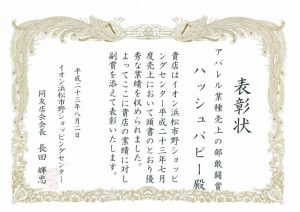 表彰状
アパレル業種売上の部敢闘賞
ハッシュパピー殿
貴店はイオン浜松市野ショッピ
ングセンター平成二十三年七月
度売上において頭書のとおり優
秀な業績を収められました。
よってここに貴店の業績に対し
副賞を添えて表彰いたします。
平成二十三年八月二日
イオン浜松市野ショッピングセンター
同友店会会長 長田 輝忠